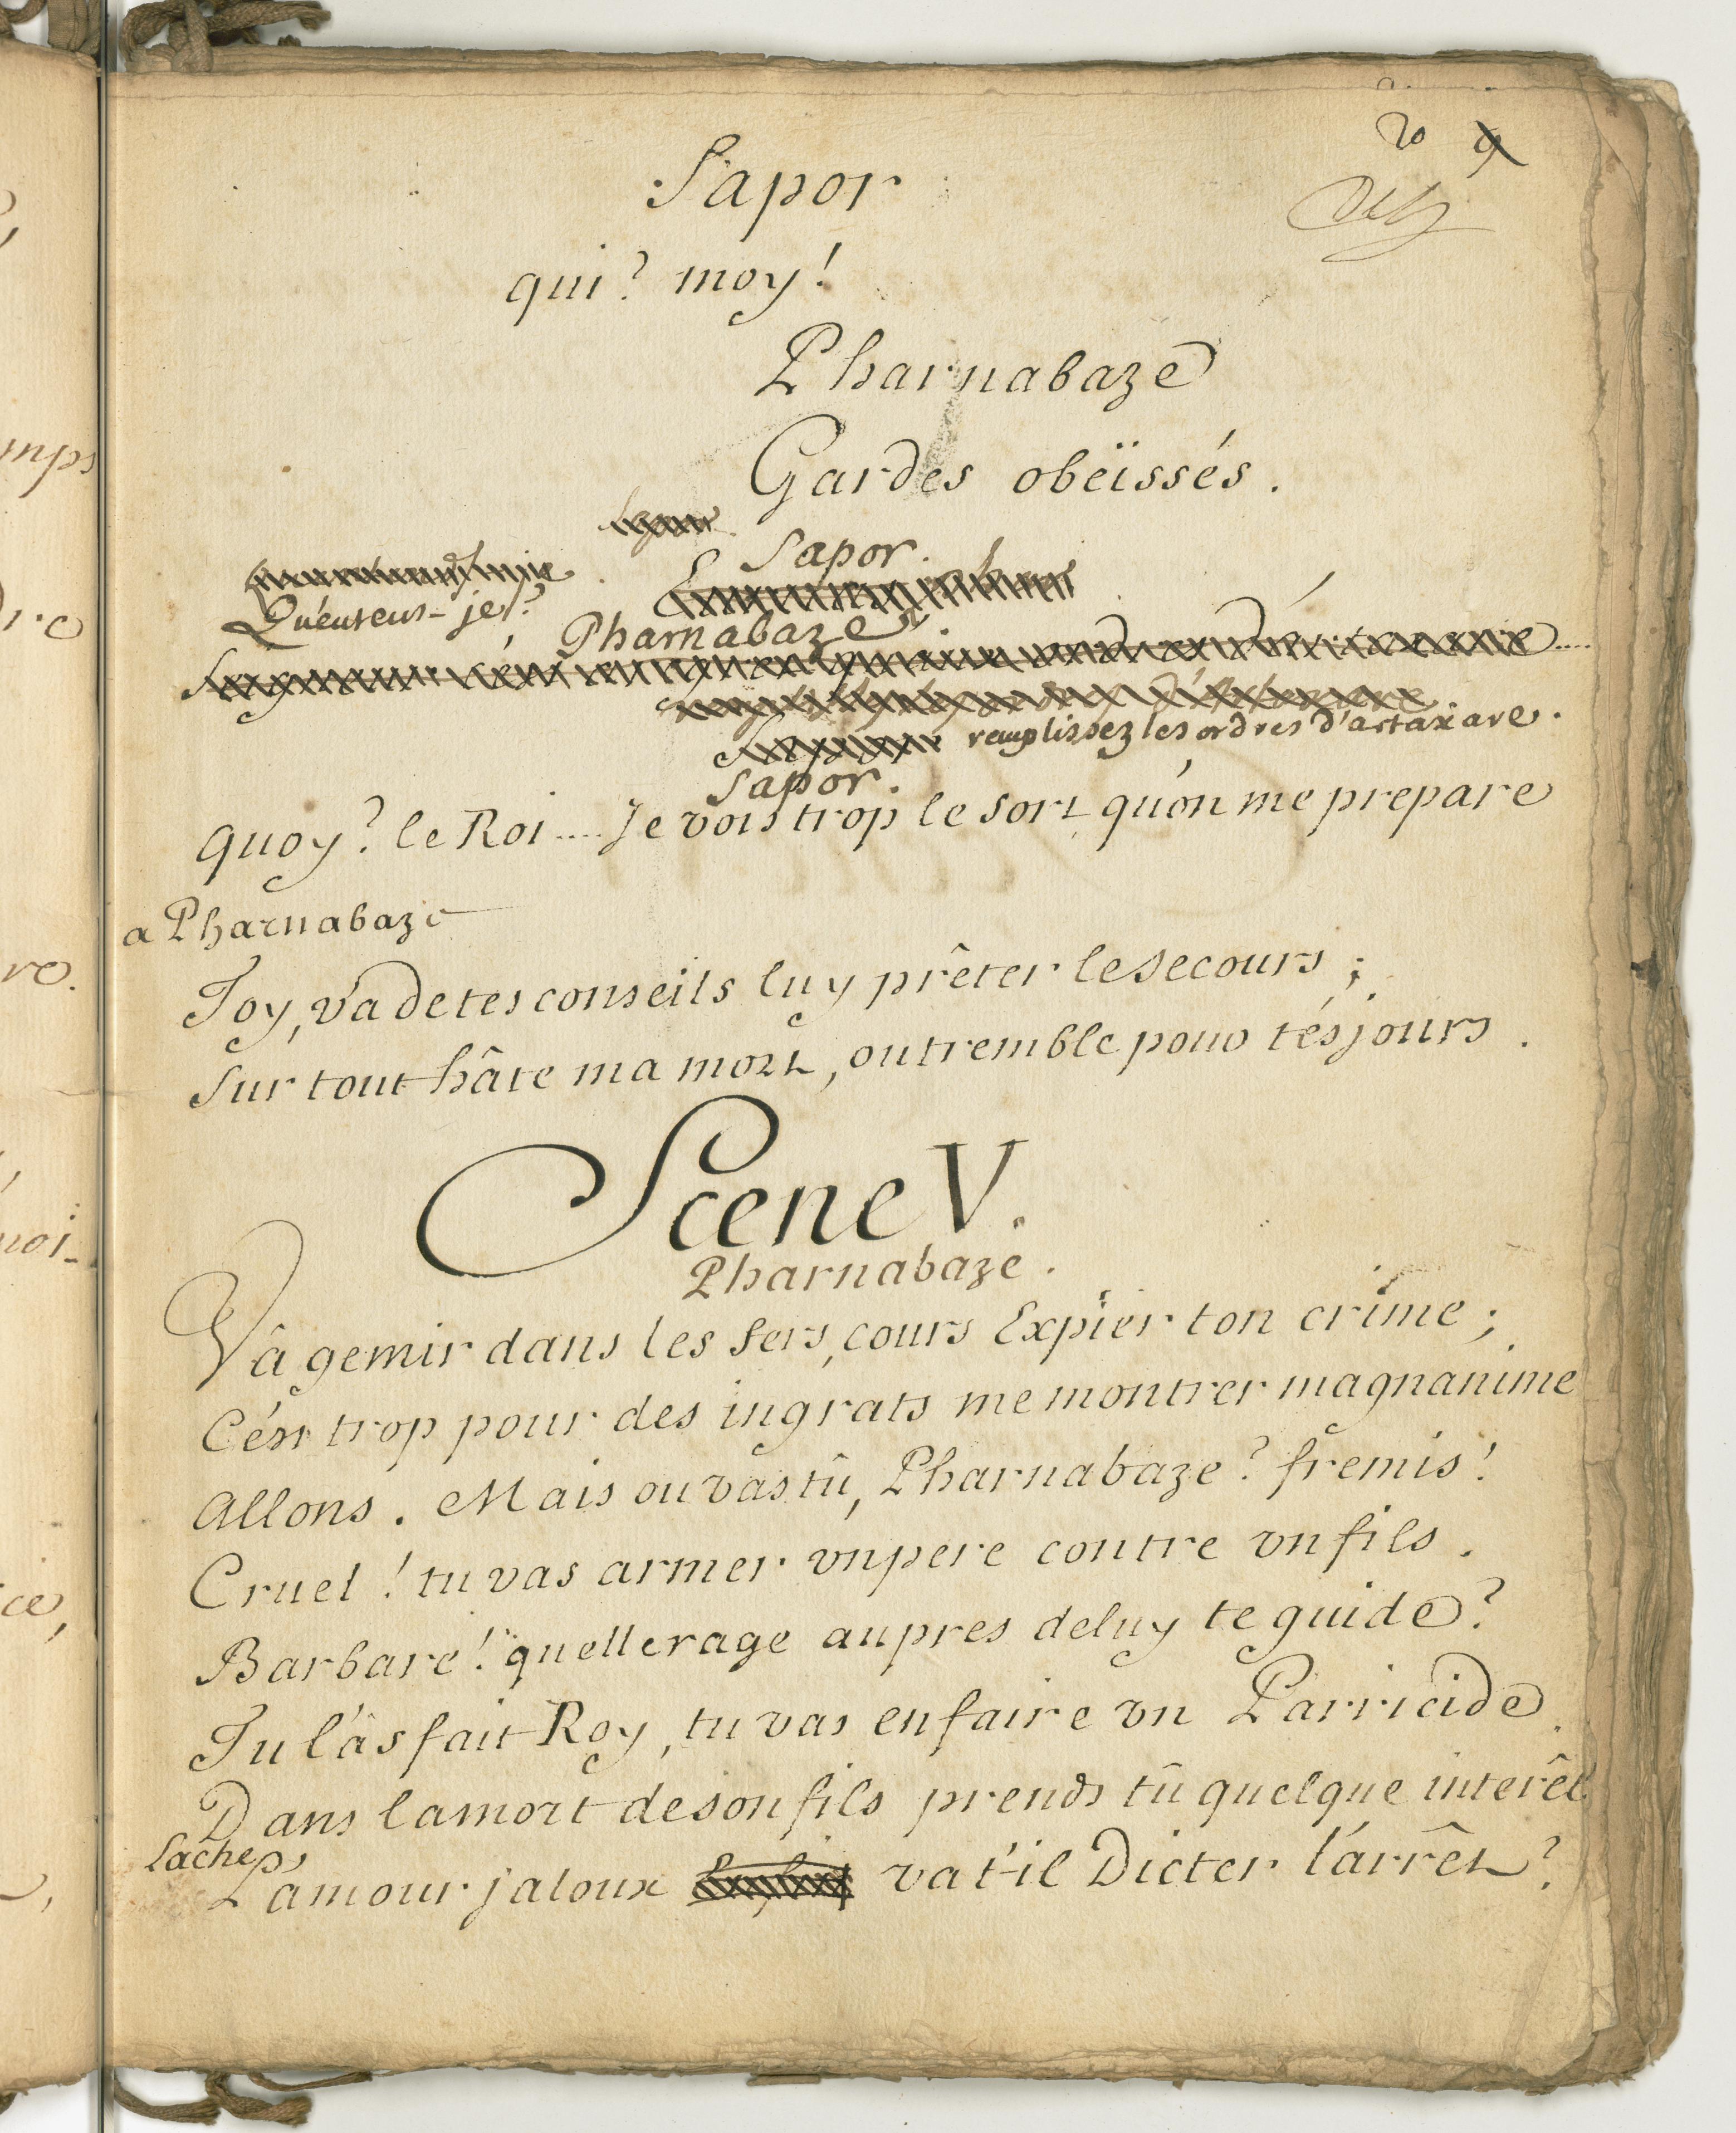 20 9
Sapor
qui? moy!
Pharnabaze
Gardes obëissés.
Sapor.
Qu'entens-je?
Pharnabaze
remplissez les ordres d'artaxare.
Sapor.
quoy? le Roi.... Je vois trop le sort qu'on me prepare
a Pharnabaze
Toy, va de tes conseils luy prêter le secours;
Sur tout hâte ma mort, ou tremble pour tes jours.
Scene V.
Pharnabaze.
Vâ gemir dans les fers, cours Expier ton crime;
C'ést trop pour des ingrats me montrer magnanime
Allons. Mais ou vas tû, Pharnabaze? fremis!
Cruel! tu vas armer vn pere contre vn fils.
Barbare! quelle rage aupres de luy te guide?
Tu l'âs fait Roy, tu vas en faire vn Parricide.
Dans la mort de son fils prends tû quelque interêt
Lache,
L'amour jaloux va t'il Dicter l'arrêt?